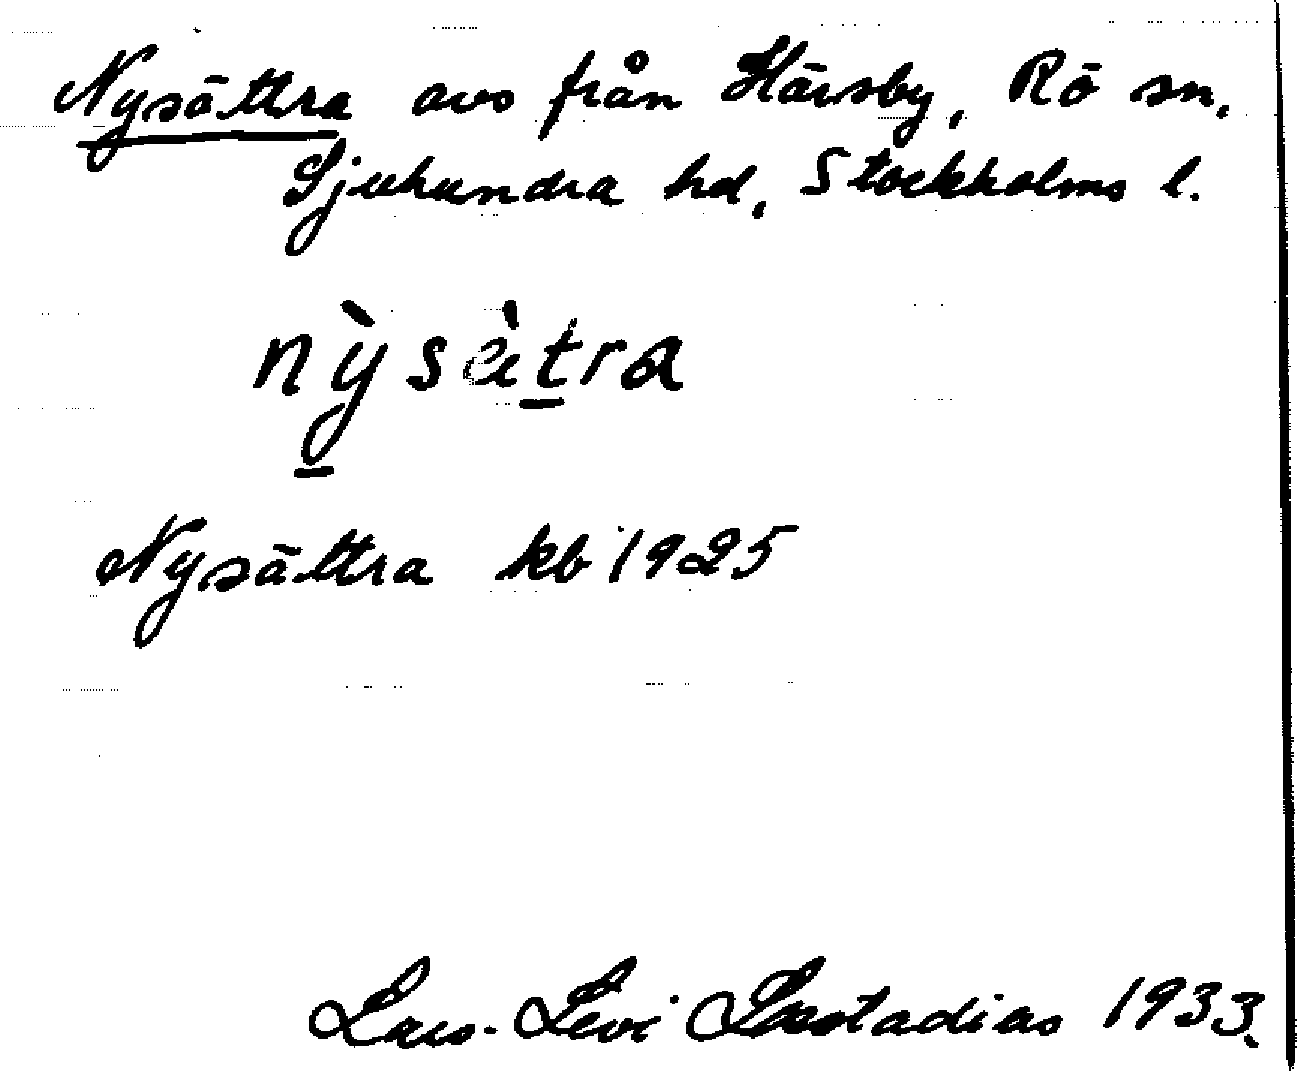 Nysättra avs från Härsby, Rö sn,
Sjuhundra hd, Stockholms l.
nỳ̱sæ̀ṯra
Nysättra kb 1925
Lars-Levi Læstadius 1933.